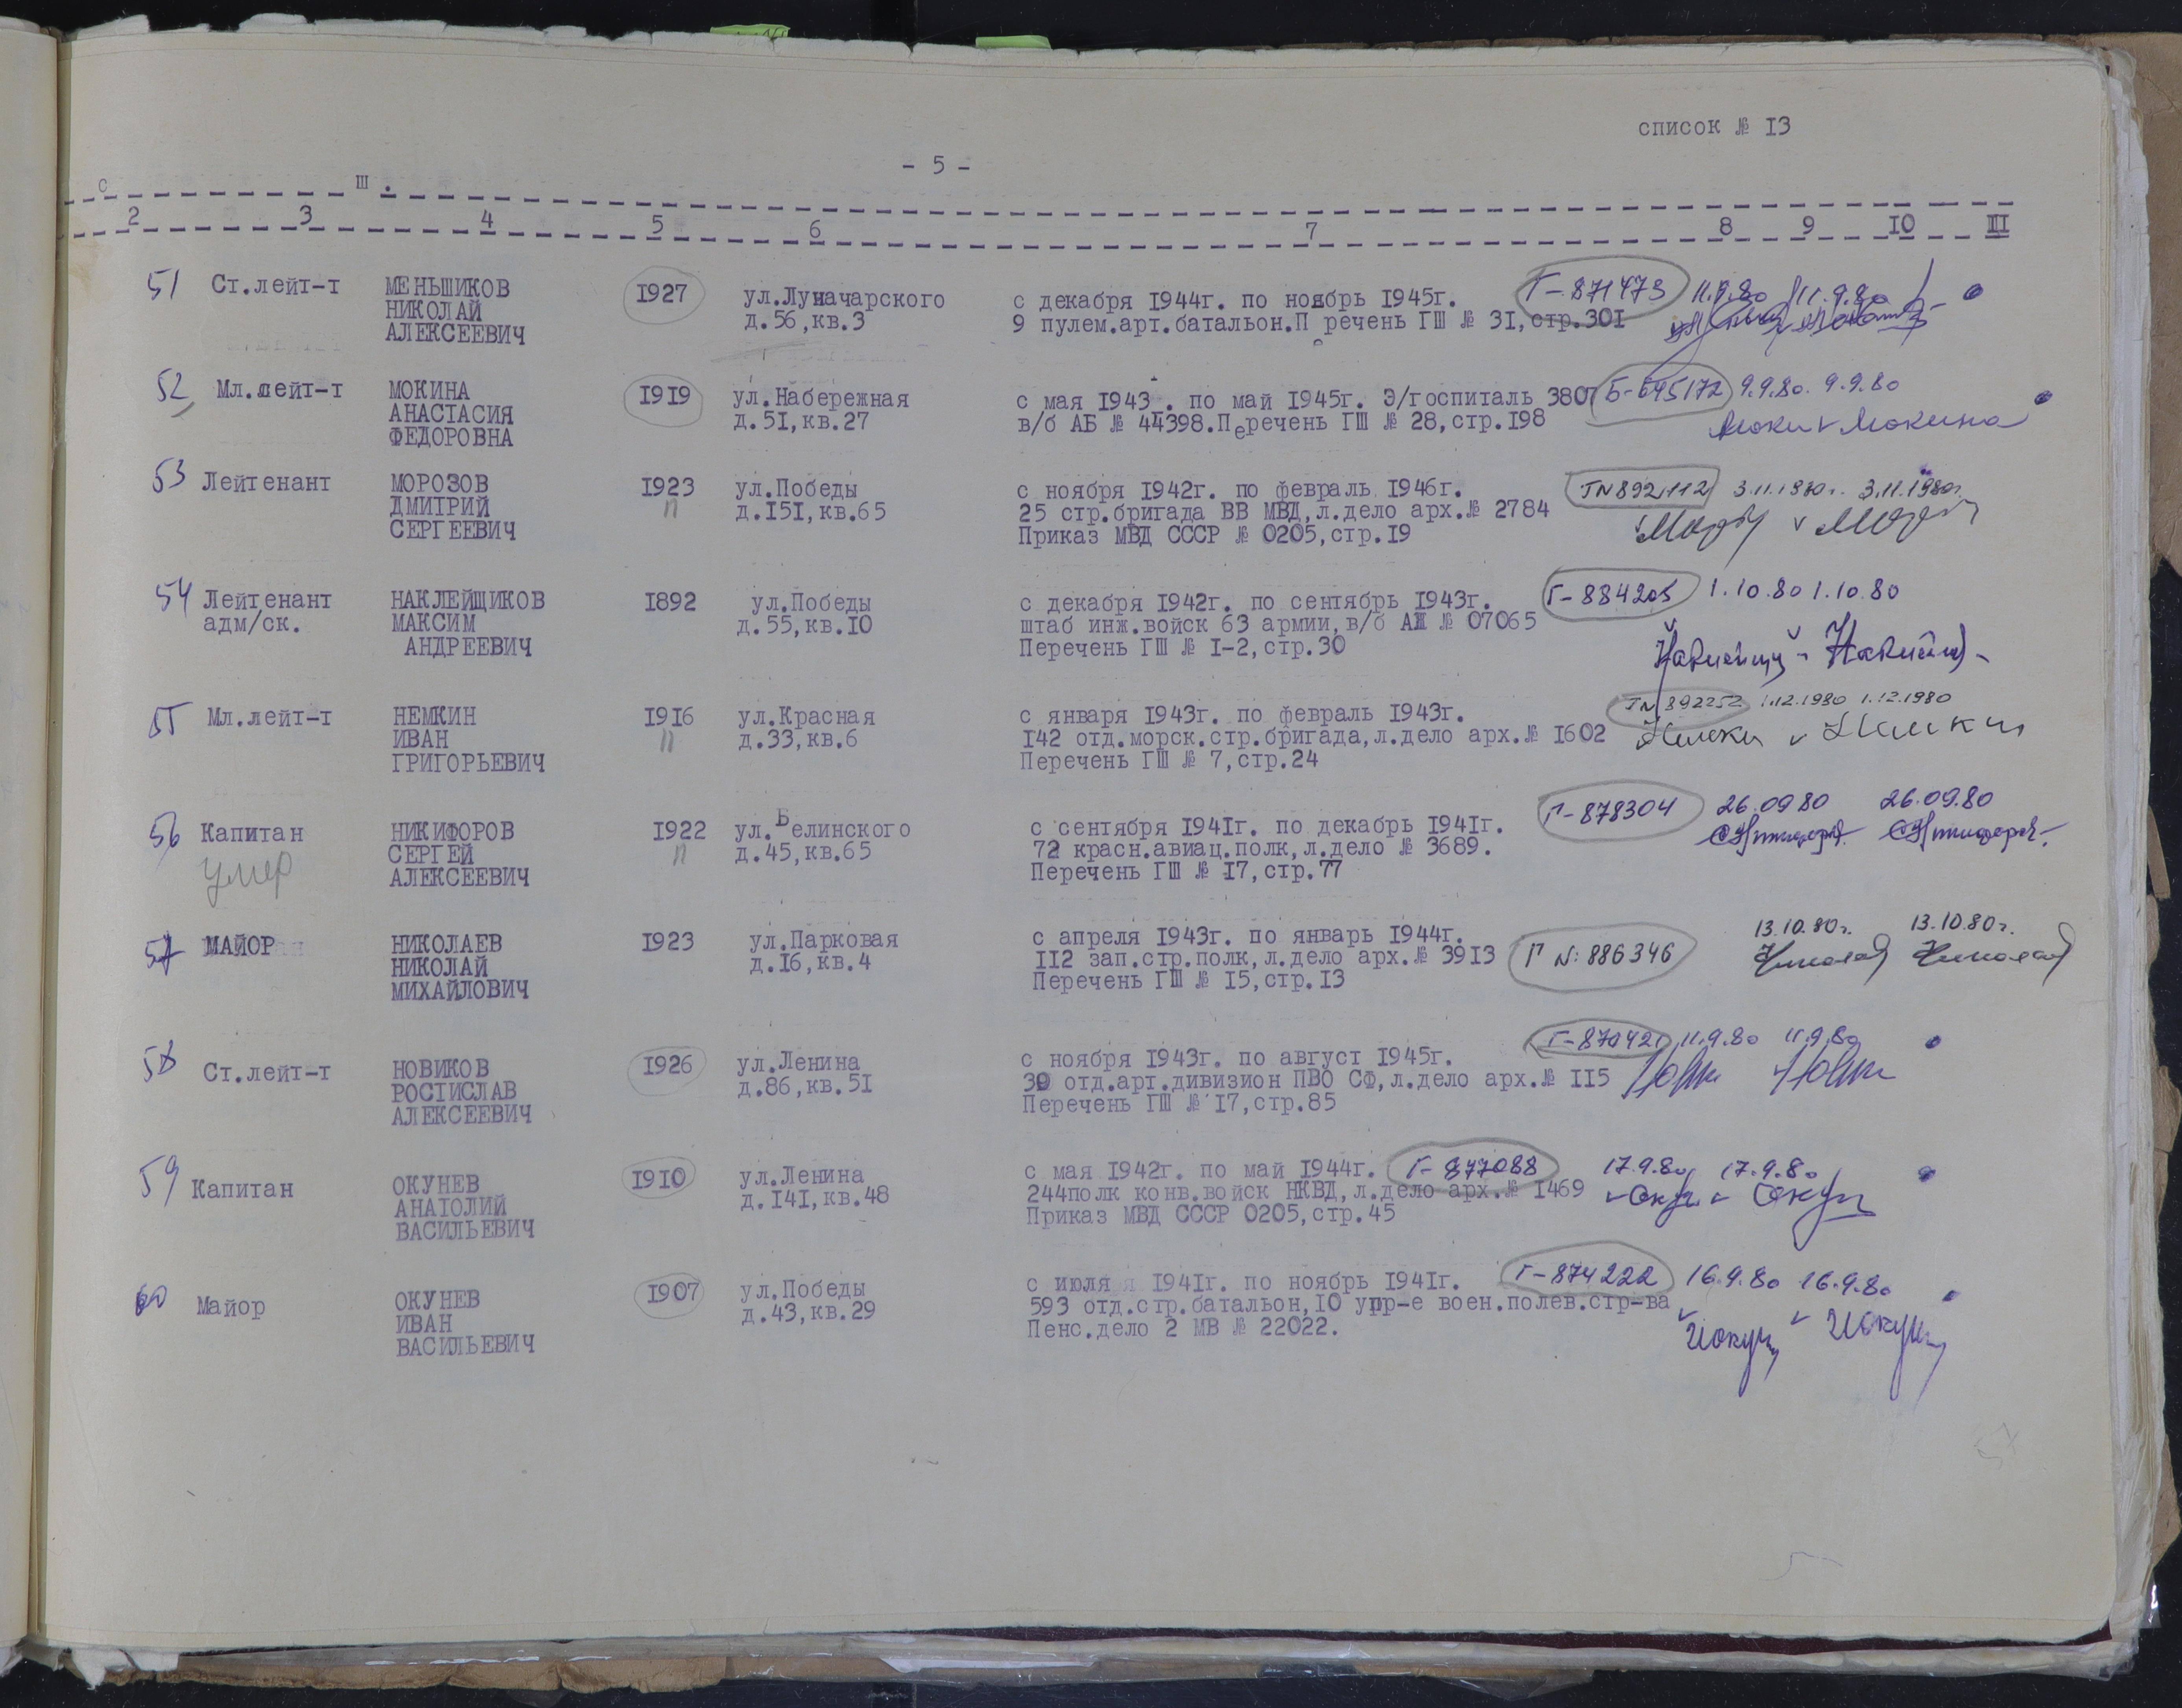 список № I3
- 5 -
с ш .
2 3 4 5 6 7 8 9 IO III
51 Ст.лейт-т МЕНЬШИКОВ I927 ул.Луначарского с декабря I944г. по ноябрь I945г. Г-871473 11.9.80 11.9.80
НИКОЛАЙ д.56,кв.3 9 пулем.арт.батальон.П речень ГШ № 3I,стр.30I
е
АЛЕКСЕЕВИЧ
52 Мл.лейт-т МОКИНА I9I9 ул.Набережная с мая I943 . по май I945г. Э/госпиталь 3807 Б-645172 9.9.80. 9.9.80
АНАСТАСИЯ д.5I,кв.27 в/б АБ № 44398.Перечень ГШ № 28,стр.I98 Моки v Мокина
ФЕДОРОВНА
53 Лейтенант МОРОЗОВ I923 ул.Победы с ноября I942г. по февраль I946г. ГN892112 3.11.1980г. 3.11.1980г.
ДМИТРИЙ п д.I5I,кв.65 25 стр.бригада ВВ МВД,л.дело арх.№ 2784
СЕРГЕЕВИЧ Приказ МВД СССР № 0205,стр.I9
54 Лейтенант НАКЛЕЙЩИКОВ I892 ул.Победы с декабря I942г. по сентябрь I943г. Г-884205 1.10.80 1.10.80
адм/ск. МАКСИМ д.55,кв.IO штаб инж.войск 63 армии,в/б АЖ № 07065
АНДРЕЕВИЧ Перечень ГШ № I-2,стр.30
55 Мл.лейт-т НЕМКИН I9I6 ул.Красная с января I943г. по февраль I943г. ГN892252 1.12.1980 1.12.1980
ИВАН п д.33,кв.6 I42 отд.морск.стр.бригада,л.дело арх.№ I602
ГРИГОРЬЕВИЧ Перечень ГШ № 7,стр.24
56 Капитан НИКИФОРОВ I922 ул.Белинского с сентября I94Iг. по декабрь I94Iг. Г-878304 26.09.80 26.09.80
умер СЕРГЕЙ п д.45,кв.65 72 красн.авиац.полк,л.дело № 3689.
АЛЕКСЕЕВИЧ Перечень ГШ № I7,стр.77
57 МАЙОР НИКОЛАЕВ I923 ул.Парковая с апреля I943г. по январь I944г. Г N: 886346 13.10.80г. 13.10.80г.
НИКОЛАЙ д.I6,кв.4 II2 зап.стр.полк,л.дело арх.№ 39I3
МИХАЙЛОВИЧ Перечень ГШ № I5,стр.I3
58 Ст.лейт-т НОВИКОВ I926 ул.Ленина с ноября I943г. по август I945г. Г-870421 11.9.80 11.9.80
РОСТИСЛАВ д.86,кв.5I 30 отд.арт.дивизион ПВО СФ,л.дело арх.№ II5
АЛЕКСЕЕВИЧ Перечень ГШ № I7,стр.85
59 Капитан ОКУНЕВ I9I0 ул.Ленина с мая I942г. по май I944г. Г-877088 17.9.80 17.9.80
АНАТОЛИЙ д.I4I,кв.48 244полк конв.войск НКВД,л.дело арх.№ I469
ВАСИЛЬЕВИЧ Приказ МВД СССР 0205,стр.45
60 Майор ОКУНЕВ I907 ул.Победы с июля I94Iг. по ноябрь I94Iг. Г-874222 16.9.80 16.9.80
ИВАН д.43,кв.29 593 отд.стр.батальон,IO упр-е воен.полев.стр-ва
ВАСИЛЬЕВИЧ Пенс.дело 2 МВ № 22022.